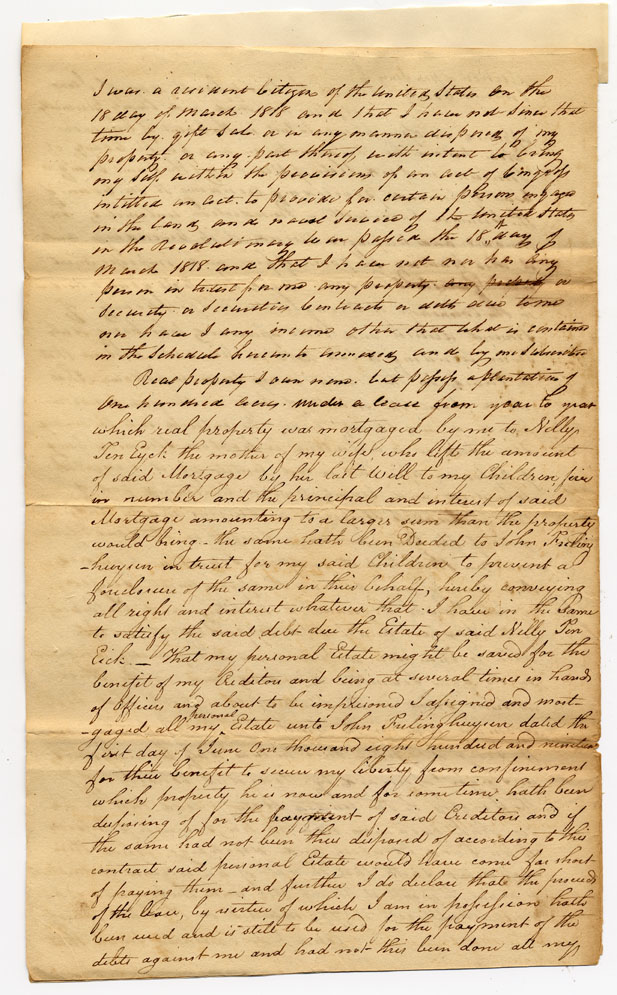 I was a resident Citizen of the United States on the
18 day of March 1818 and that I have not since that
time by gift Sale or in any manner disposed of my
property or any part thereof with intent to bring
my Self within the provisions of an act of Congress
intitled an act to provide for certain persons engaged
in the land and naval Service of the United States
in the Revolutionary War passed the 18th day of
March 1818 and that I have not nor has any
person in trust for me any property or
Security or Securities Contracts or debts due to me
nor have I any income other that what is contained
in the Schedule hereunto annexed and by me Subscribed
Real property I own none. but possess a plantation of
One hundred acres under a lease from year to year
which real property was mortgaged by me to Nelly
Ten Eyck the mother of my wife, who left the amount
of said Mortgage by her last Will to my Children five
in number and the principal and interest of said
Mortgage amounting to a larger sum than the property
would bring - the same hath been Deeded to John Freling
-huysen in trust for my said Children to prevent a
foreclosure of the same in their behalf, hereby conveying
all right and interest whatever that I have in the same
to satisfy the said debt due the Estate of said Nelly Ten
Eick — That my personal Estate might be saved for the
benefit of my Creditors and being at several times in hands
of Officers and about to be imprisoned I assigned and mort-
-gaged all my personal Estate unto John Frelinghuysen dated the
first day of June One thousand eight hundred and nineteen
for their benefit to secure my liberty from confinement
which property he is now and for some time hath been
disposing of for the payment of said Creditors and if
the same had not been thus disposed of according to this
contract said personal Estate would have come far short
of paying them - and further I do declare thate the proceeds
of the lease, by virtue of which I am in possession hath
been used and is still to be used for the payment of the
debts against me and had not this been done all my